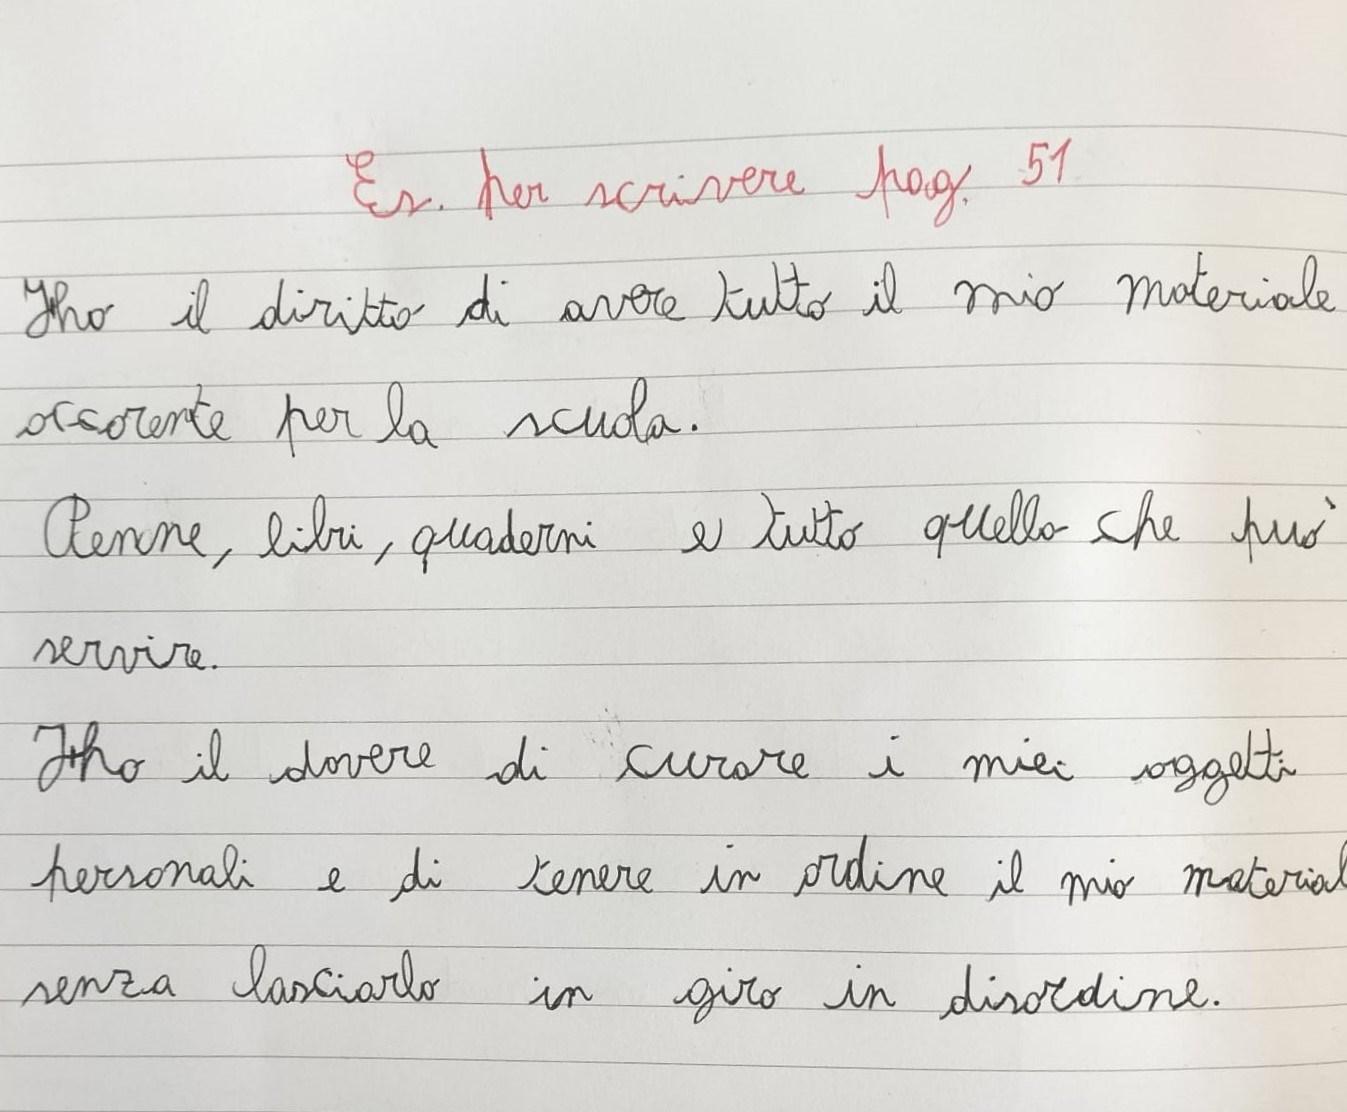 Es. per scrivere pag. 51
Ho il diritto di avere tutto il mio materiale
occorente per la scuola.
Penne, libri, quaderni e tutto quello che può
servire.
Ho il dovere di curare i miei oggetti
personali e di tenere in ordine il mio material
senza lasciarlo in giro in disordine.